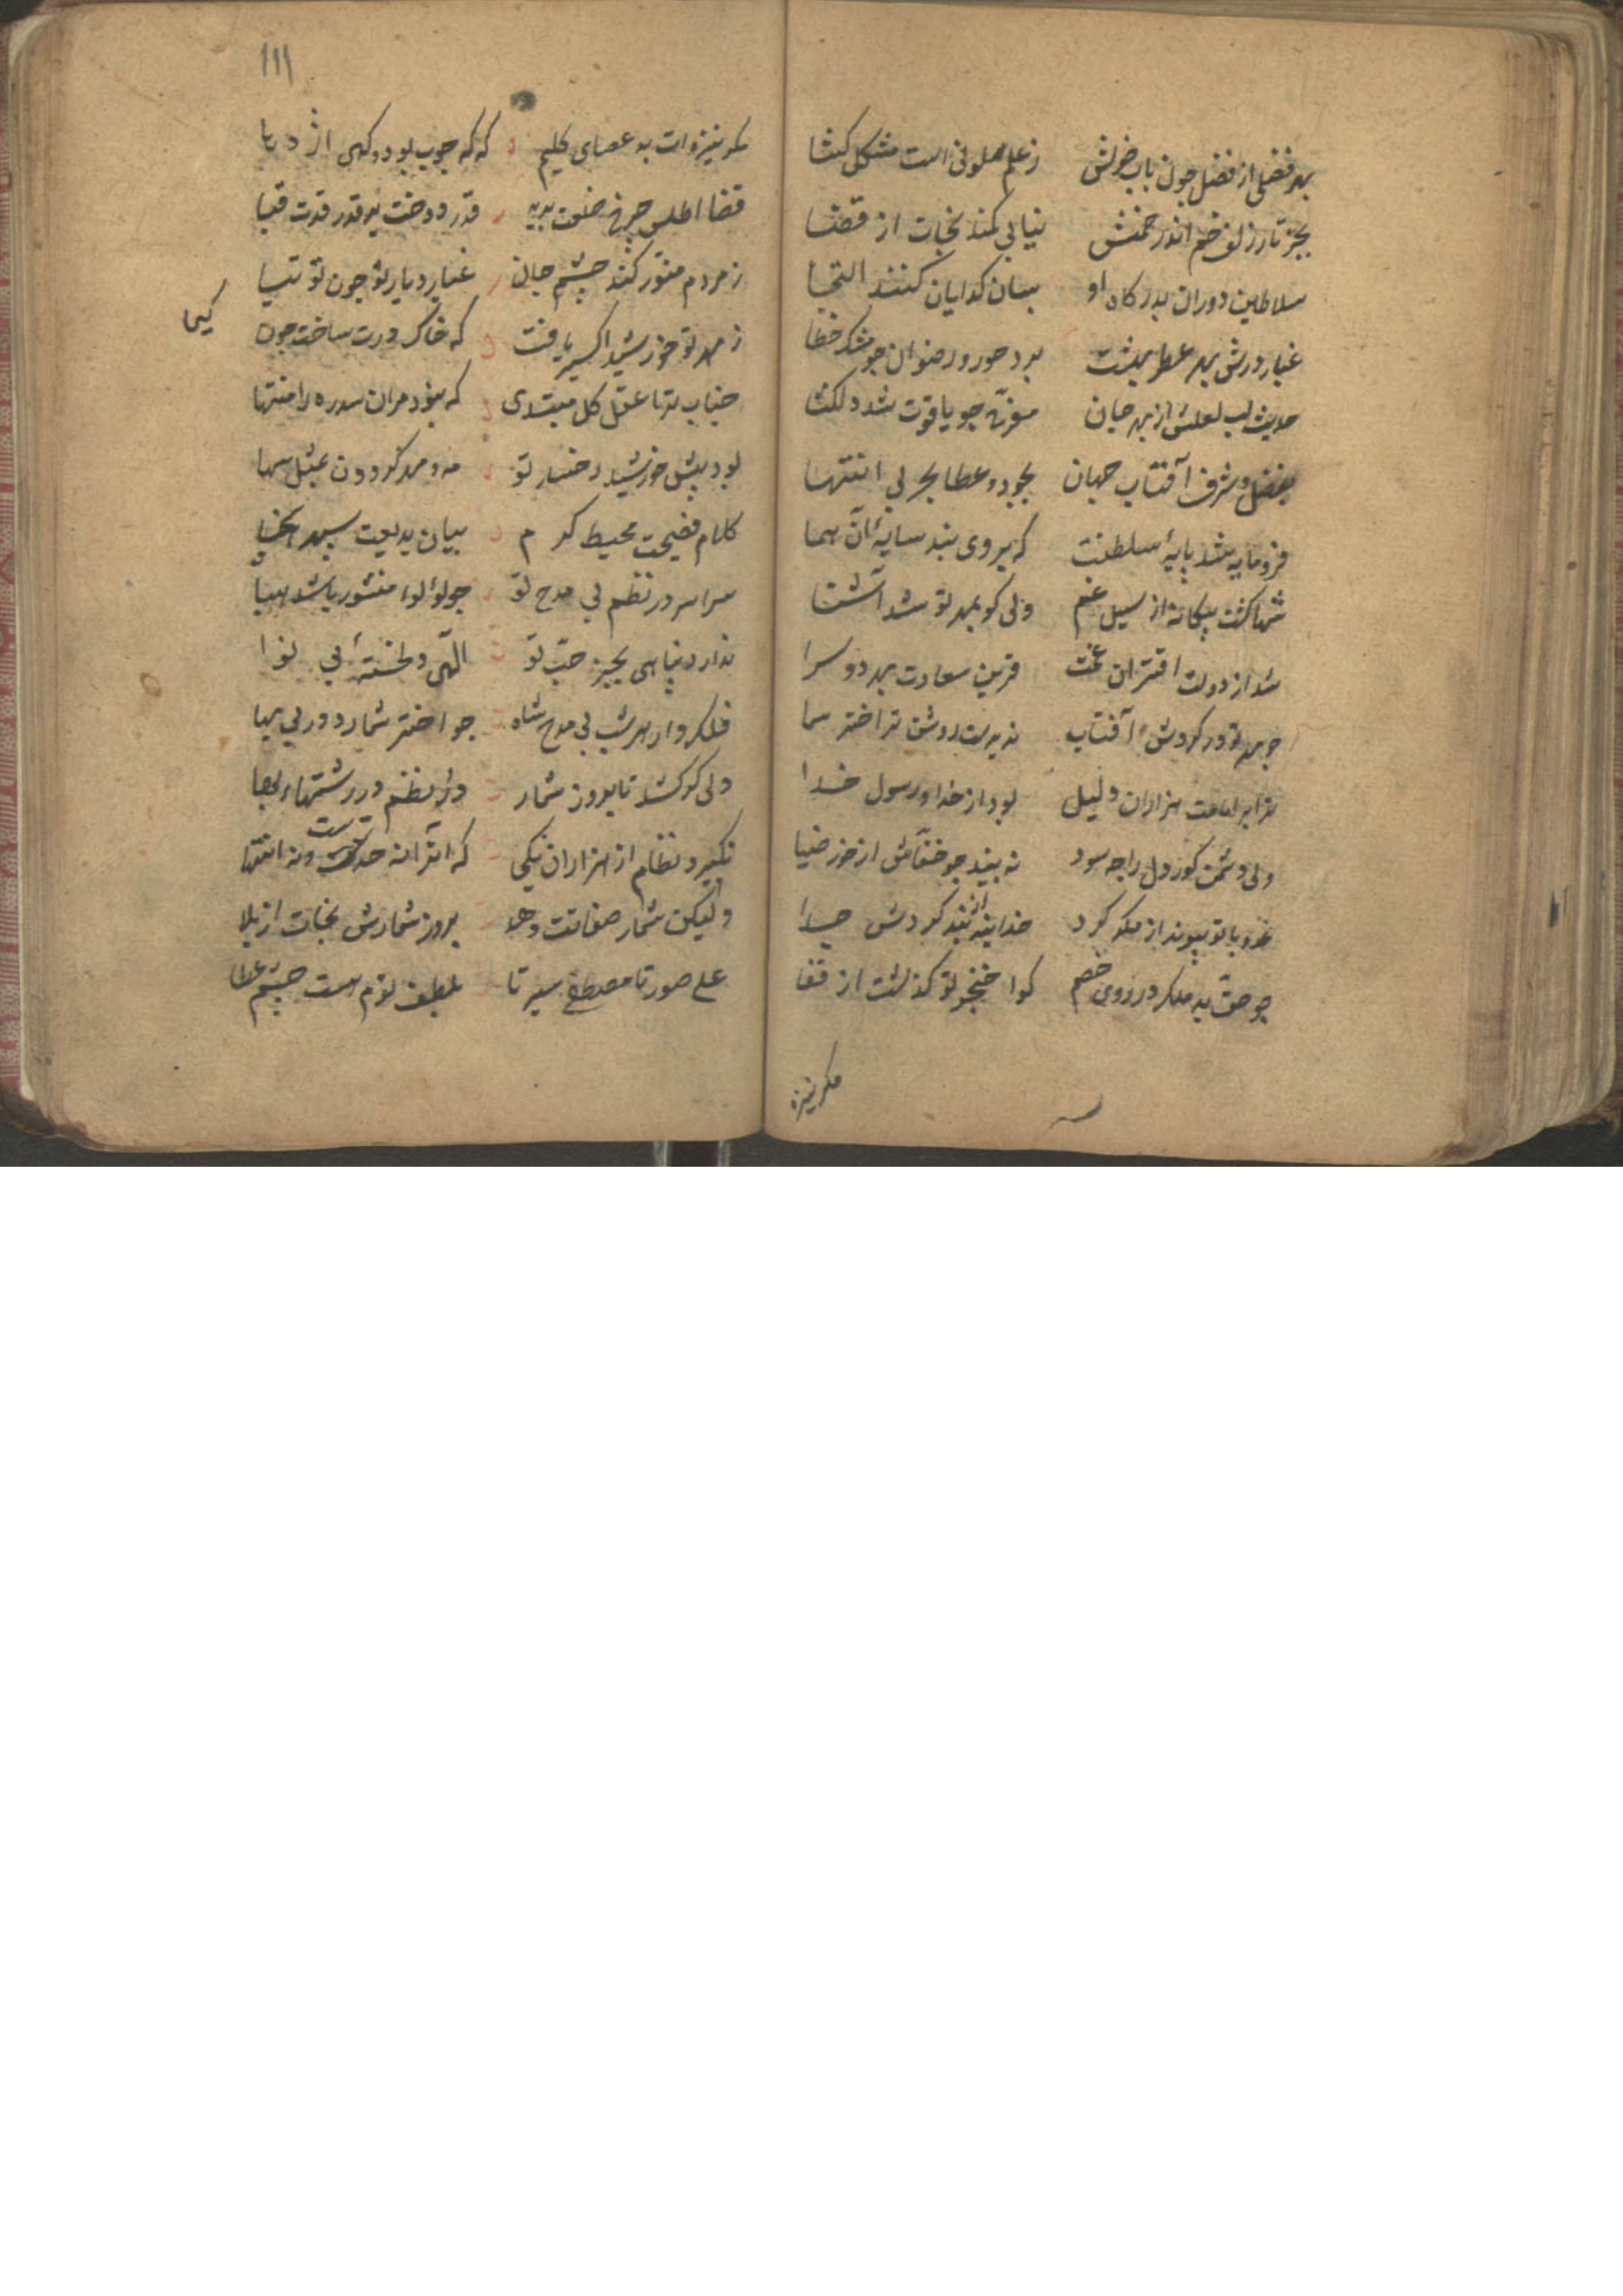 بهر فضلی از فضل چون باب خویش زعلم سلونی است مشکل کشا
بجز تار زلف خم اندر خمش نیابی کمند نجات از قضا
سلاطین دوران بدرکاه او بسان کدایان کنند التجا
غبار درش بهر عطر بهشت برد حور و رضوان جو مشک خطا
حدیث لب لعلش از بهر جان مفرح جو یاقوت شد دلکشا
بفضل و شرف آفتاب جهان بجود و عطا بحر بی انتها
فرومایه شد پایهٔ سلطنت که بروی بند سایهٔ آن هما
شها کشت بیکانه از سیل غم ولی کو بمهر تو شد آشنا
شد از دولت اقتران غمت قرین سعادت بهر دو سرا
جو مهر تو در کردش آفتاب ندیدست روشن تر اختر سما
ترا بر امامت هزاران دلیل بود از خدا و رسول خدا
ولی دشمن کور دل را جه سود نه بیند جو خفاش از خور ضیا
عدو با تو پیوند از مکر کرد خدا بند از بند کردش جدا
جو حق بد مکر در روی خصم کوا خنجر تو کذشت از قفا
مکر نیزه
١١١
مکر نیزه ات بد عصای کلیم که که جوب بود و کهی اژدها
قضا اطلس چرخ خلعت برید قدر دوخت بر قدر قدرت قبا
زمردم منور کند چشم جان غبار دیار تو جون توتیا
زمهر تو خورشید اکسیر یافت که خاک درت ساخت جون کیمیا
جناب ترا عقل کل مبتدی که بود مران سدره را منتها
بود پیش خورشید رخسار تو مه و مهر کردون بمثل سها
کلام فصیحت محیط کرم بیان بدیعت سپهر سخا
سراسر در نظم بی مدح تو جو لؤلؤاء منثور باشد هبا
ندارد پناهی بجز حب تو الهی دلخستهٔ بی نوا
فلک وار هر شب بی مدح شاه جو اختر شمارد در بی بها
ولی کر کشد تا بروز شمار در نظم در رشتهاء بها
نکیرد نظام از هزاران یکی که آنرا نه حدست و نه انتها
ولیکن شمار صفاتت دهد بروز شمارش نجات از بلا
علی صورتا مصطفی سیرتا بلطف توم هست چشم عطا